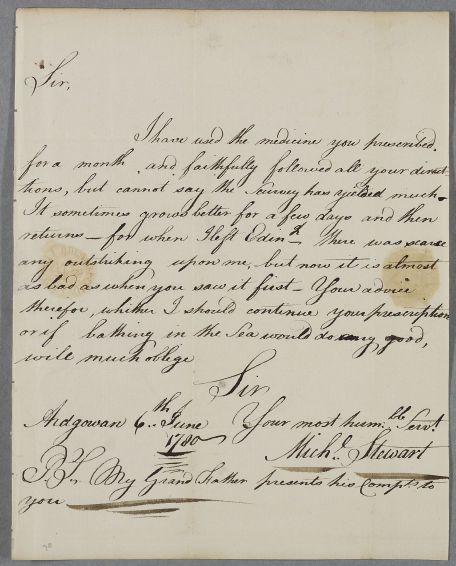 Sir,
I have used the medicine you prescribed.
for a month and faithfully followed all your direc-
tions, but cannot say the Scurvy has yielded much.
It sometimes grows better for a few days and then
returns – for when I left Edinr. There was scarse
any outstriking upon me, but now it is almost
as bad as when you saw it first – Your advice
therefor, whither I should continue your prescription
or if bathing in the Sea would do any good,
will much oblege
Sir
Ardgowan 6th June Your most humble. Servt.
1780 Michl. Stewart
P.S. My Grand Father presents his Compts. to
you